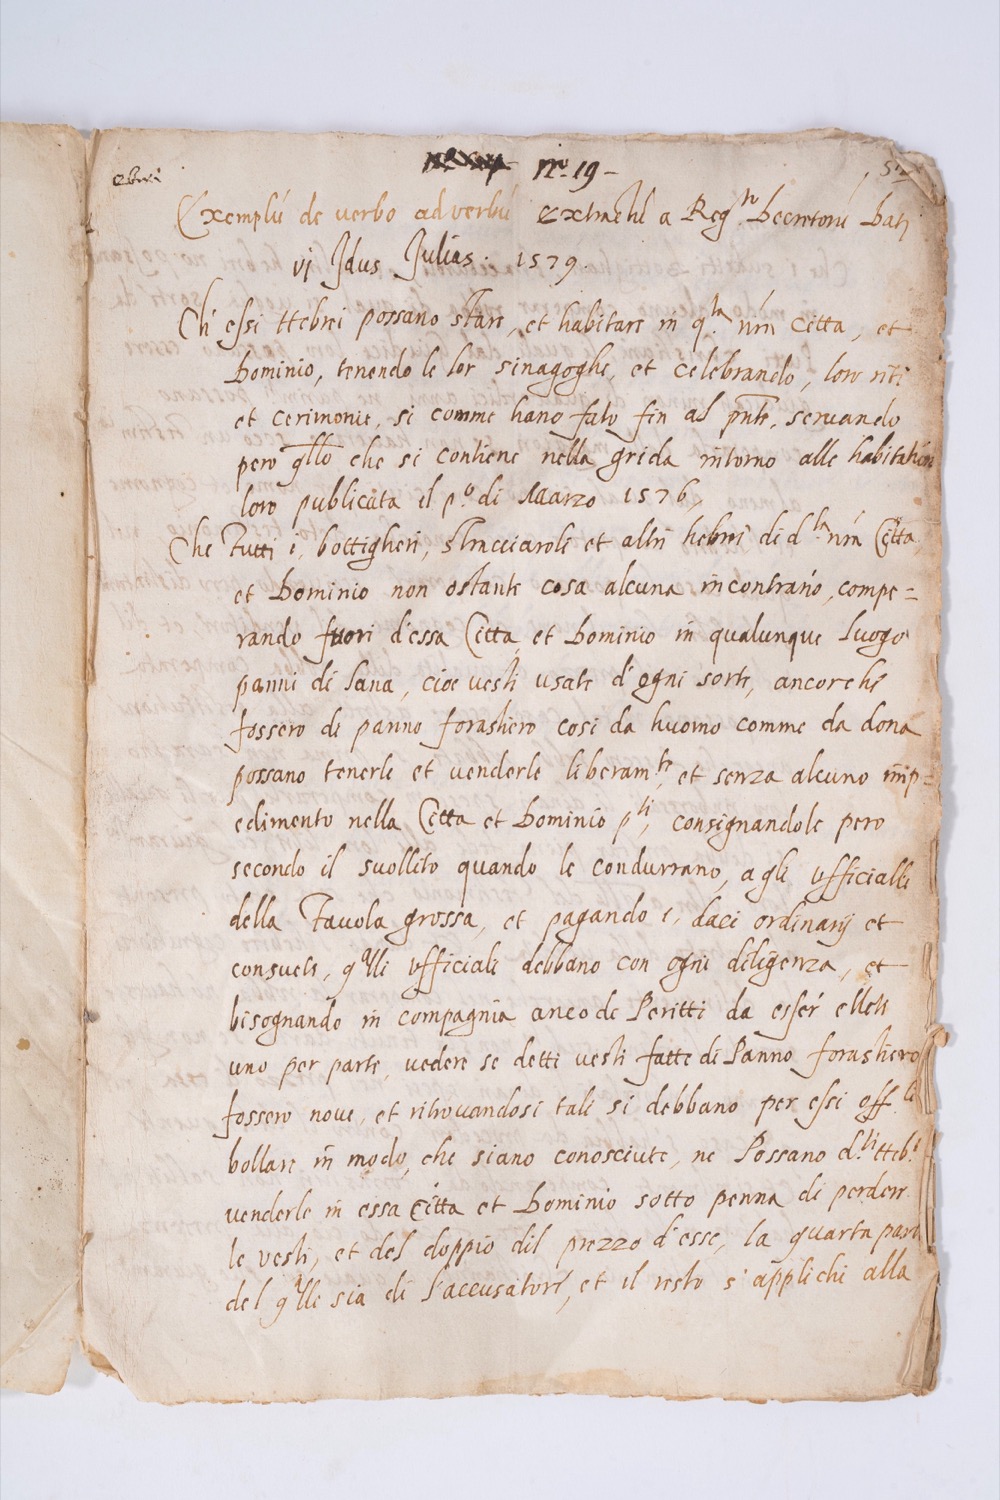 ebrei
nr. 19 -
Exemplũ de verbo ad verbũ extractũ a Reg.ro Decretorũ
vj Idus Julias. 1579.
Ch' essi Hebrei possano stare, et habitare in q.ta n̄ra Citta, et
Dominio, tenendo le lor sinagoghe, et celebrando, loro riti
et cerimonie, si comme hano fato fin al pn̄te, servando
pero q̄llo che si contiene nella grida intorno alle habitation
loro publicata il p.o di Marzo 1576,
Che Tutti i, bottigheri, stracciaroli et altri hebrei di d.ta n̄ra Citta,
et Dominio non ostante cosa alcuna incontrario, compe=
rando fuori d'essa Citta, et Dominio in qualunque Luogo
panni di Lana, cioe vesti usate d'ogni sorte, ancorche
fossero di panno forastiero cosi da huomo comme da dona
possano tenerle et venderle liberam.te, et senza alcuno imp=
edimento nella Citta et Dominio p.ti, consignandole pero
secondo il suollito quando le condurrano, agli ufficialli
della Tavola grossa, et pagando i, daci ordinarij et
consueti, q.lli ufficiali debbano con ogni diligenza, et
bisognando in compagnia anco de Peritti da esser elleti
uno per parte, vedere se detti vesti fatte di Panno forastiero
fossero nove, et ritrovandosi tali si debbano per essi off.li
bollare in modo, che siano conosciute, ne Possano d.ti Heb.i
venderle in essa Citta et Dominio sotto penna di perderr
le vesti, et del doppio dil prezzo d'esse, la quarta part
del q.lle sia di l'accusatore, et il resto s'applichi alla